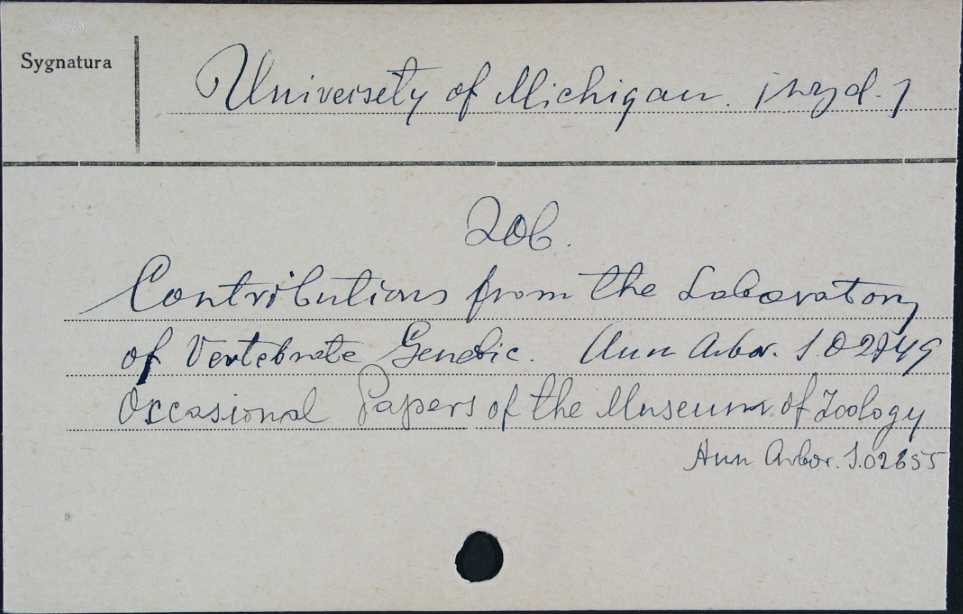 Sygnatura
University of Michigan. (wyd.)
Zob.
Contributions from the Laboratory
of Vertebrate Genetic. Ann Arbor. S.02749
Occasional Papers of the Museum of Zoology
Ann Arbor. S.02655